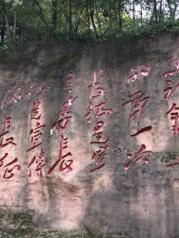 的第一次
长征是宣
言书长
征是宣传
队长征